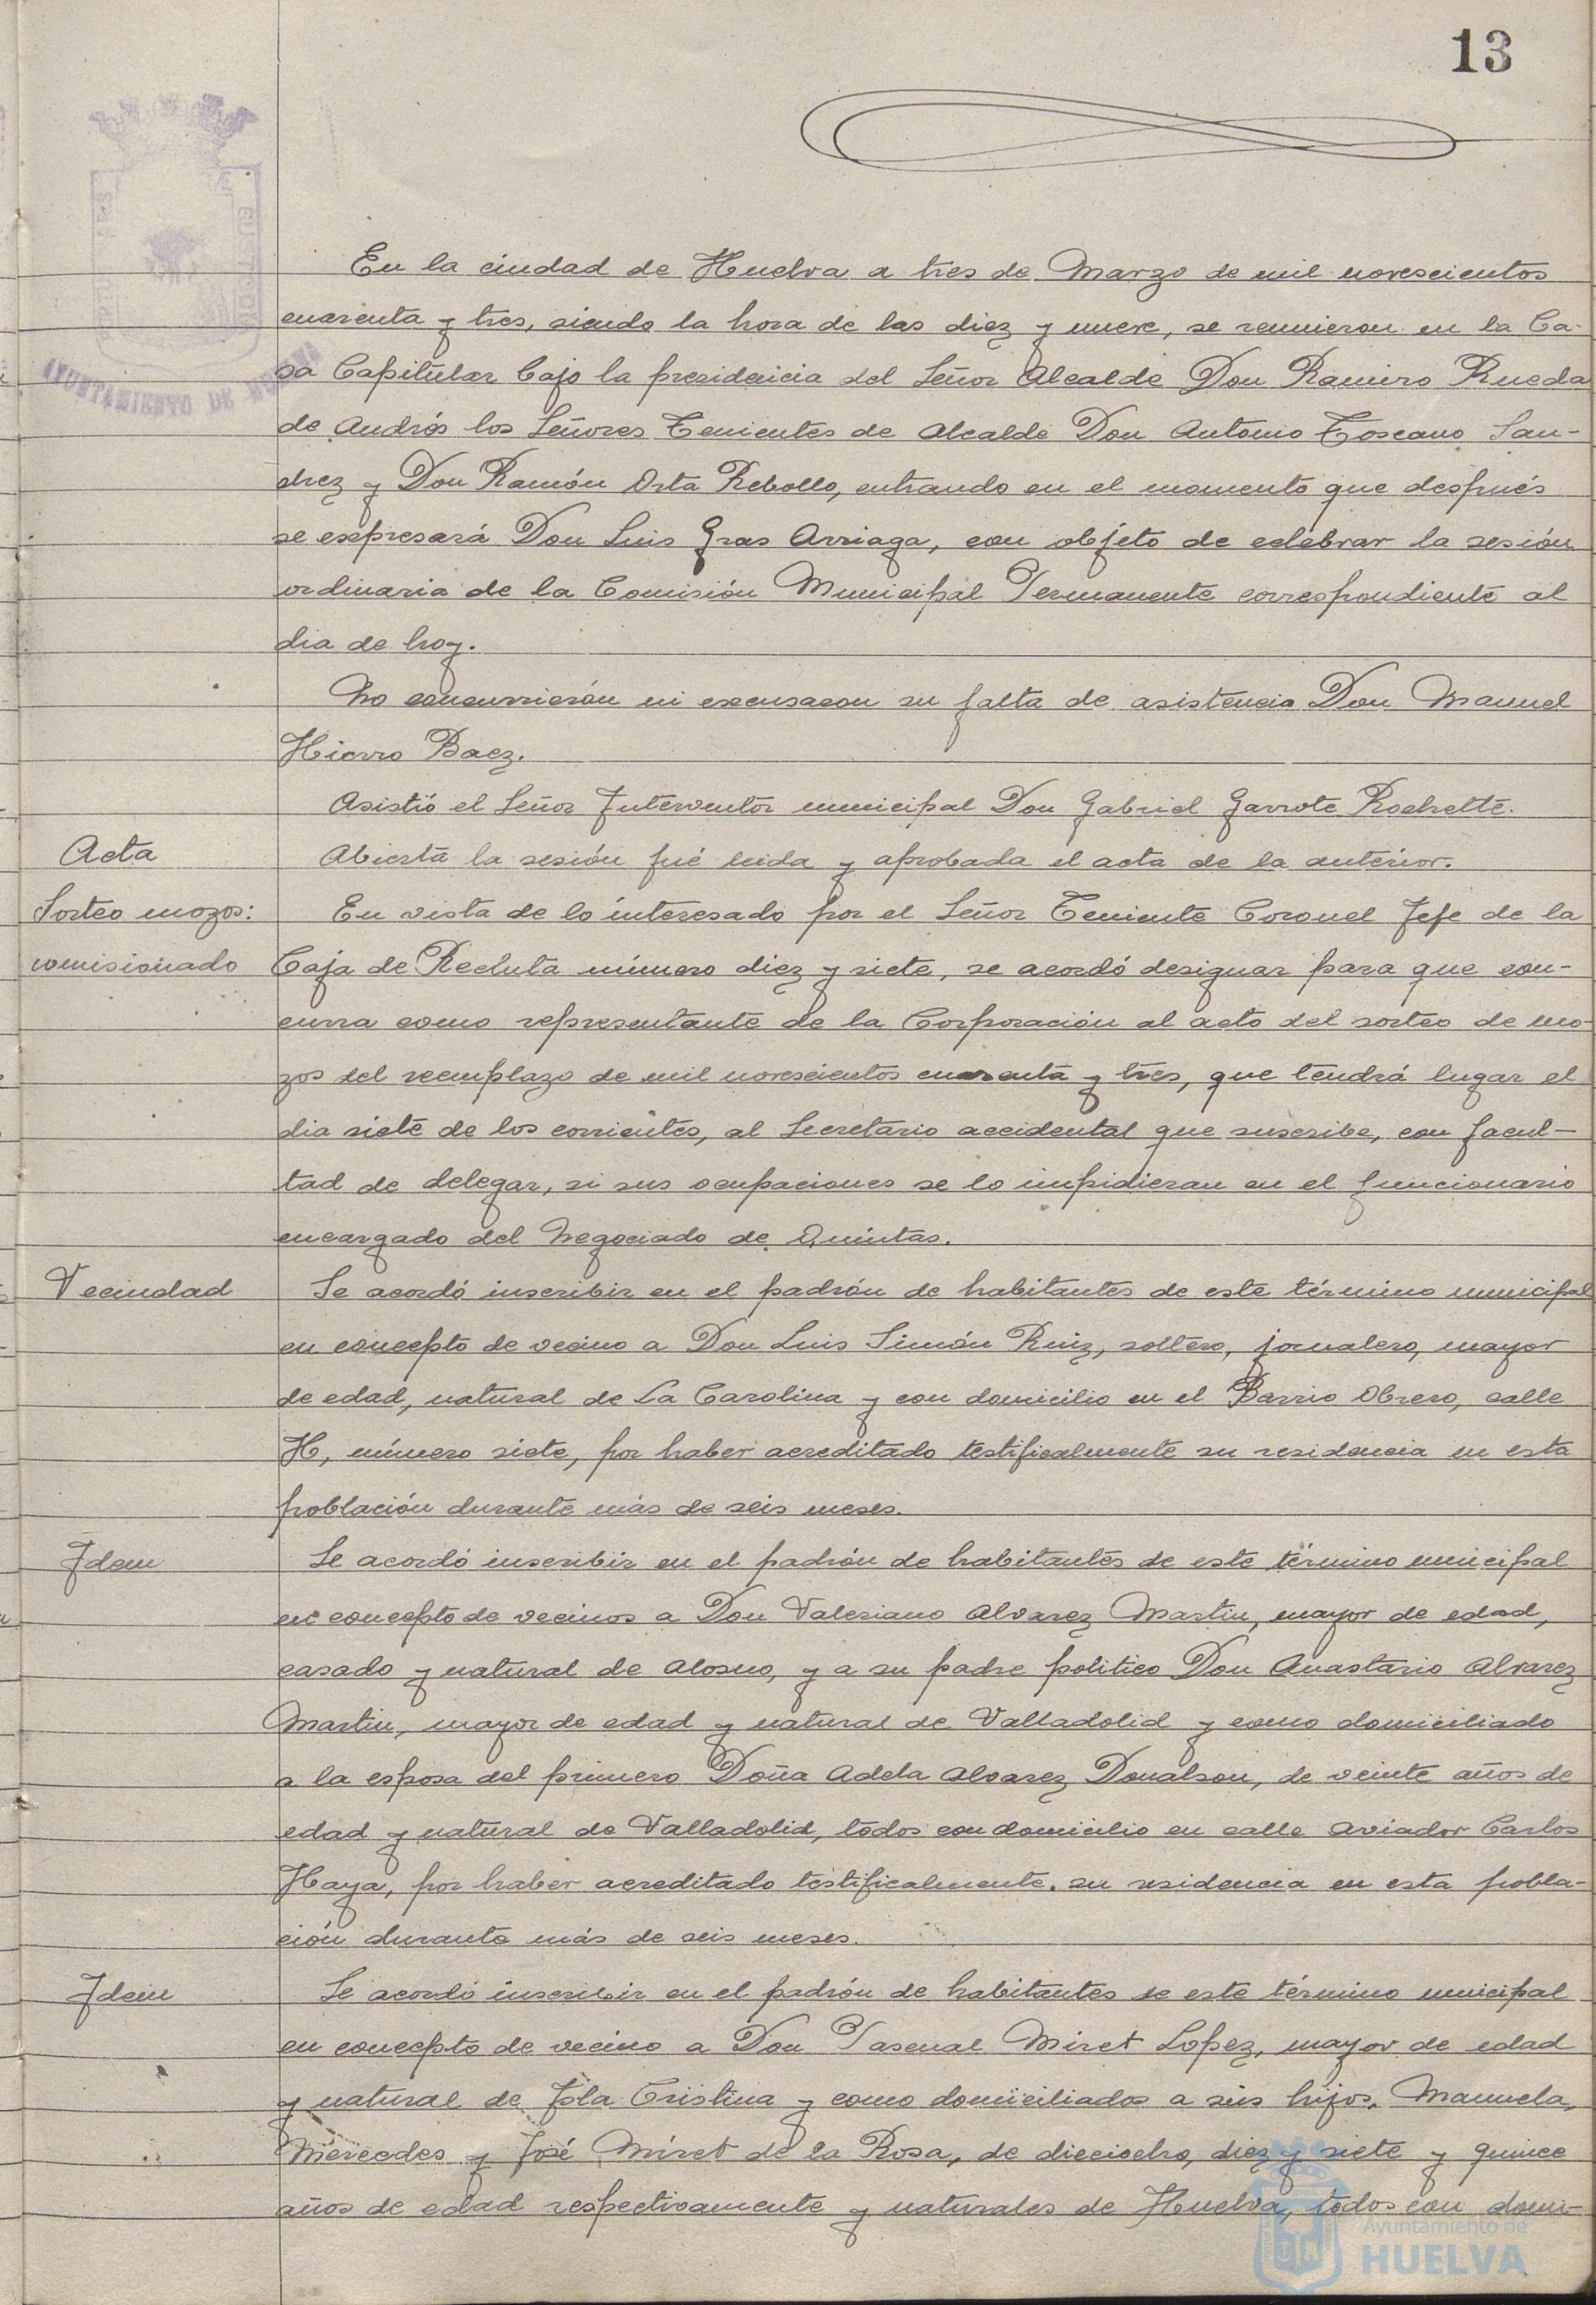 13
En la ciudad de Huelva a tres de Marzo de mil novescientos
cuarenta y tres, siendo la hora de las diez y nueve, se reunieron en la Ca-
sa Capitular bajo la presidencia del Señor Alcalde Don Ramiro Rueda
de Andrés los Señores Tenientes de Alcalde Don Antonio Toscano San-
chez y Don Ramón Orta Rebollo, entrando en el momento que después
se expresará Don Luis Gras Arriaga, con objeto de celebrar la sesión
ordinaria de la Comisión Municipal Permanente correspondiente al
dia de hoy.
No concurrierón ni excusaron su falta de asistencia Don Manuel
Hierro Baez.
Asistió el Señor Interventor municipal Don Gabriel Garrote Rochette.
Acta
Abierta la sesión fué leida y aprobada el acta de la anterior.
Sorteo mozos:
En vista de lo interesado por el Señor Teniente Coronel Jefe de la
comisionado
Caja de Recluta número diez y siete, se acordó designar para que con-
curra como representante de la Corporación al acto del sorteo de mo-
zos del reemplazo de mil novescientos cuarenta y tres, que tendrá lugar el
dia siete de los corrientes, al Secretario accidental que suscribe, con facul-
tad de delegar, si sus ocupaciones se lo impidieran en el funcionario
encargado del Negociado de Quintas.
Vecindad
Se acordó inscribir en el padrón de habitantes de este término municipal
en concepto de vecino a Don Luis Simón Ruiz, soltero, jornalero, mayor
de edad, natural de La Carolina y con domicilio en el Barrio Obrero, calle
H, número siete, por haber acreditado testificalmente su residencia en esta
población durante más de seis meses.
Idem
Se acordó inscribir en el padrón de habitantes de este término municipal
en concepto de vecinos a Don Valeriano Alvarez Martin, mayor de edad,
casado y natural de Alosno, y a su padre politico Don Anastasio Alvarez
Martin, mayor de edad y natural de Valladolid y como domiciliado
a la esposa del primero Doña Adela Alvarez Donalson, de veinte años de
edad y natural de Valladolid, todos con domicilio en calle Aviador Carlos
Haya, por haber acreditado testificalmente su residencia en esta pobla-
ción durante más de seis meses.
Idem
Se acordó inscribir en el padrón de habitantes de este término municipal
en concepto de vecino a Don Pascual Miret Lopez, mayor de edad
y natural de Isla Cristina y como domiciliados a sus hijos, Manuela,
Mercedes y José Miret de la Rosa, de dieciocho, diez y siete y quince
años de edad respectivamente y naturales de Huelva, todos con domi-
AYUNTAMIENTO DE HUELVA
Ayuntamiento de
HUELVA